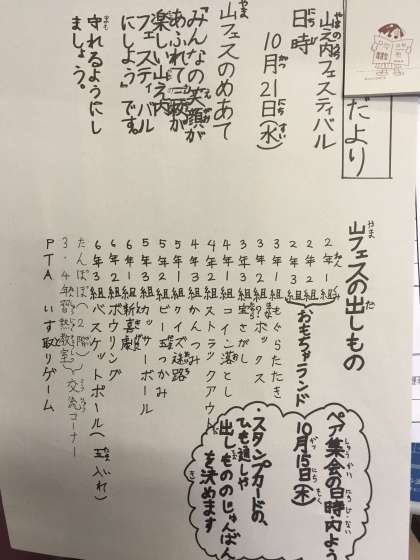 だより
山之内フェスティバル
日時
10月21日(水)
山フェスのめあて
「みんなの笑顔が
あふれて三校が
楽しい山之内
フェスティバル
にしよう」です。
守れるようにし
ましょう。
山フェスの出しもの
2年1組
2年2組
2年3組
おもちゃランド
3年1組もぐらたたき
3年2組?ボックス
3年3組宝さがし
4年1組コイン落とし
4年2組ストラックアウト
4年3組かんつみ
5年1組クイズ迷路
5年2組ピー玉つかみ
5年3組サッカーボール
6年1組新喜劇
6年2組ボウリング
6年3組バスケットボール(玉入れ)
たんぽぽ(2階)
3・4年習熟教室
交流コーナー
PTA いす取りゲーム
ペア集会の日時・内よう
10月15日(木)
・スタンプカードの、
ひも通しや
出しもののじゅんばん
を決めます